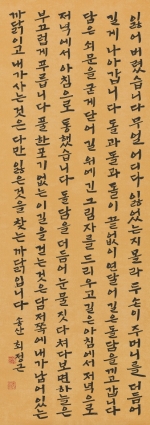 잃어버렸습니다 무얼 어디다 잃었는지 몰라 두 손이 주머니를 더듬어
길게 나아갑니다 돌과 돌과 돌이 끝없이 연달어 길은 돌담을 끼고 갑니다
담은 쇠문을 굳게 닫어 길 위에 긴 그림자를 드리우고 길은 아침에서 저녁으로
저녁에서 아침으로 통했습니다 돌담을 더듬어 눈물 짓다 쳐다보면 하늘은
부끄럽게 푸릅니다 풀 한 포기 없는 이 길을 걷는 것은 담 저쪽에 내가 남어 있는
까닭이고 내가 사는 것은 다만 잃은 것을 찾는 까닭입니다 송산 최정근